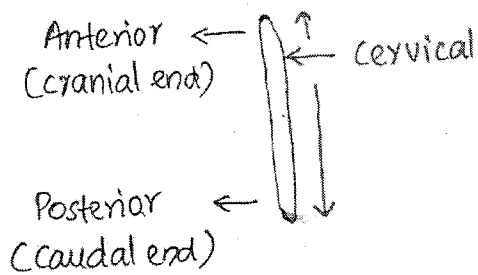 Anterior
(cranial end)
cervical
Posterior
(caudal end)